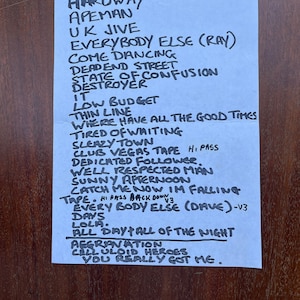 HARDWAY
APEMAN
U K JIVE
EVERYBODY ELSE (RAY)
COME DANCING
DEADEND STREET
STATE OF CONFUSION
DESTROYER
IT
LOW BUDGET
THIN LINE
WHERE HAVE ALL THE GOOD TIMES
TIRED OF WAITING
SLEAZY TOWN
CLUB VEGAS TAPE HI PASS
DEDICATED FOLLOWER.
WELL RESPECTED MAN
SUNNY AFTERNOON
CATCH ME NOW IM FALLING
TAPE. HI PASS BACK DOWN V3
EVERY BODY ELSE (DAVE) -V3
DAYS
LOLA.
ALL DAY & ALL OF THE NIGHT
AGGRAVATION
CELLULOID HEROES
YOU REALLY GOT ME.